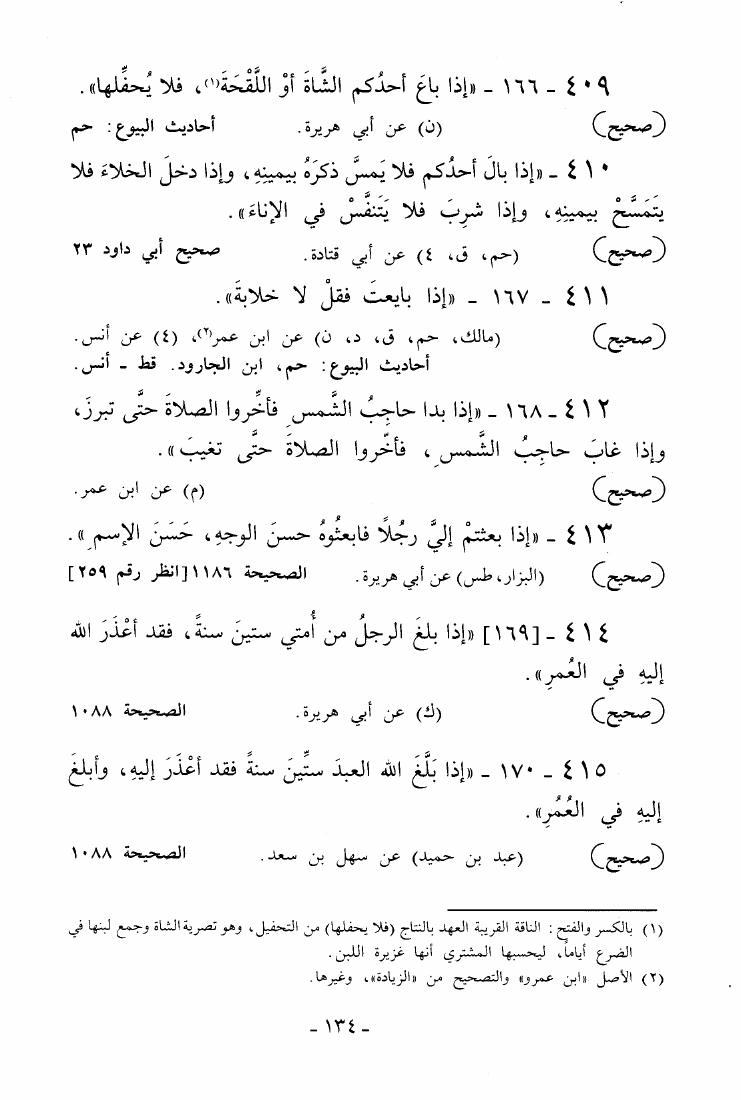 ٤٠٩ - ١٦٦ - «إذا باعَ أحدُكم الشَّاةَ أوْ اللَّقْحَةَ(١)، فلا يُحفِّلها».
(صحيح) (ن) عن أبي هريرة. أحاديث البيوع: حم
٤١٠ - «إذا بالَ أحدُكم فلا يَمسَّ ذكرَهُ بيمينِهِ، وإذا دخلَ الخلاءَ فلا
يتَمَسَّحْ بيمينِهِ، وإذا شرِبَ فلا يَتَنفَّسْ في الإناءِ».
(صحيح) (حم، ق، ٤) عن أبي قتادة. صحيح أبي داود ٢٣
٤١١ - ١٦٧ - «إذا بايعتَ فقلْ لا خلابةَ».
(صحيح) (مالك، حم، ق، د، ن) عن ابن عمر(٢)، (٤) عن أنس.
أحاديث البيوع: حم، ابن الجارود. قط - أنس.
٤١٢ - ١٦٨ - «إذا بدا حاجِبُ الشَّمسِ فأخِّروا الصلاةَ حتَّى تبرزَ،
وإذا غابَ حاجِبُ الشَّمسِ، فأخّروا الصلاةَ حتَّى تغيبَ».
(صحيح) (م) عن ابن عمر.
٤١٣ - «إذا بعثتمْ إليَّ رجُلًا فابعثُوهُ حسنَ الوجهِ، حَسَنَ الإسمِ».
(صحيح) (البزار، طس) عن أبي هريرة. الصحيحة ١١٨٦ [انظر رقم ٢٥٩]
٤١٤ - [١٦٩] «إذا بلغَ الرجلُ من أُمتي ستينَ سنةً، فقد أعْذَرَ الله
إليهِ في العُمرِ».
(صحيح) (ك) عن أبي هريرة. الصحيحة ١٠٨٨
٤١٥ - ١٧٠ - «إذا بَلَّغَ الله العبدَ ستِّينَ سنةً فقد أعْذَرَ إليهِ، وأبلغَ
إليهِ في العُمُرِ».
(صحيح) (عبد بن حميد) عن سهل بن سعد. الصحيحة ١٠٨٨
(١) بالكسر والفتح: الناقة القريبة العهد بالنتاج (فلا يحفلها) من التحفيل، وهو تصرية الشاة وجمع لبنها في
الضرع أياماً، ليحسبها المشتري أنها غزيرة اللبن.
(٢) الأصل «ابن عمرو» والتصحيح من «الزيادة»، وغيرها.
- ١٣٤ -